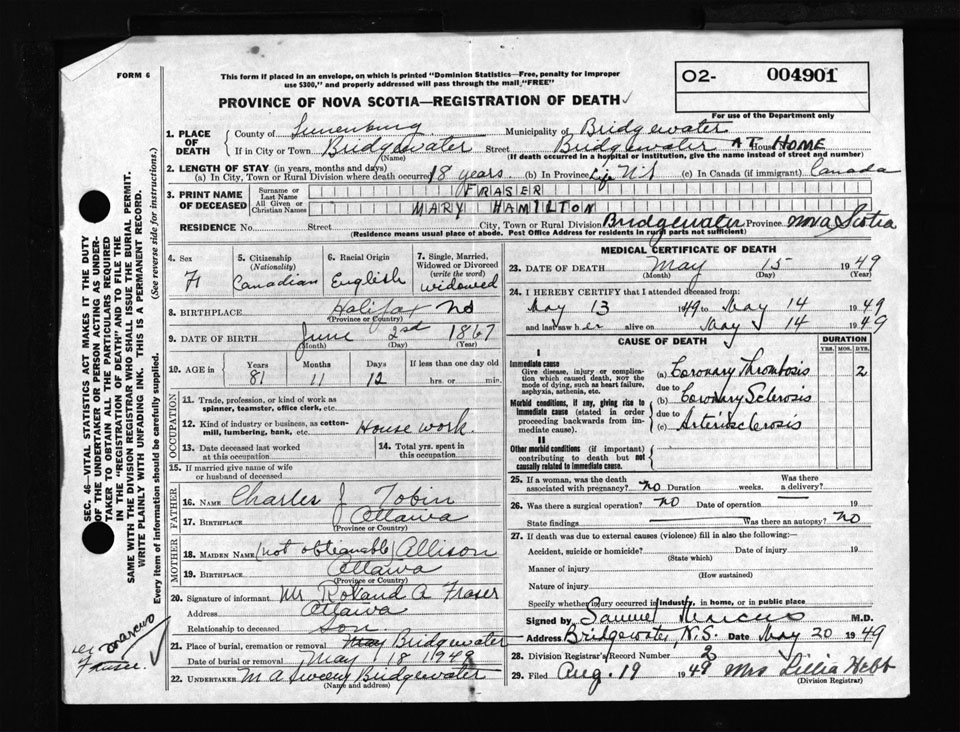 FORM 6
This form if placed in an envelope, on which is printed "Dominion Statistics—Free, penalty for improper
use $300," and properly addressed will pass through the mail "FREE"
O2- 004901
PROVINCE OF NOVA SCOTIA—REGISTRATION OF DEATH ✓
For use of the Department only
1. PLACE OF DEATH
County of Lunenburg Municipality of Bridgewater
If in City or Town Bridgewater Street Bridgewater House AT HOME
(Name) (If death occurred in a hospital or institution, give the name instead of street and number)
2. LENGTH OF STAY (in years, months and days)
(a) In City, Town or Rural Division where death occurred 18 years. (b) In Province Life N.S (c) In Canada (if immigrant) Canada
3. PRINT NAME OF DECEASED
Surname or Last Name FRASER
All Given or Christian Names MARY HAMILTON
RESIDENCE No. Street City, Town or Rural Division Bridgewater Province Nova Scotia
(Residence means usual place of abode. Post Office Address for residents in rural parts not sufficient)
4. Sex F
5. Citizenship (Nationality) Canadian
6. Racial Origin English
7. Single, Married, Widowed or Divorced (write the word) widowed
8. BIRTHPLACE Halifax NS
(Province or Country)
9. DATE OF BIRTH June 2nd 1867
(Month) (Day) (Year)
10. AGE in Years 81 Months 11 Days 12 If less than one day old
hrs. or min.
OCCUPATION
11. Trade, profession, or kind of work as
spinner, teamster, office clerk, etc.
12. Kind of industry or business, as cotton-
mill, lumbering, bank, etc. House work
13. Date deceased last worked
at this occupation
14. Total yrs. spent in
this occupation
15. If married give name of wife
or husband of deceased
FATHER
16. NAME Charles J Tobin
17. BIRTHPLACE Ottawa
(Province or Country)
MOTHER
18. MAIDEN NAME (not obtainable) Allison
19. BIRTHPLACE Ottawa
(Province or Country)
20. Signature of informant Mr Roland A Fraser
Address Ottawa
Relationship to deceased Son.
21. Place of burial, cremation or removal May Bridgewater
Date of burial or removal May 18 1949
22. UNDERTAKER M A Sweeny Bridgewater
(Name and address)
MEDICAL CERTIFICATE OF DEATH
23. DATE OF DEATH May 15 1949
(Month) (Day) (Year)
24. I HEREBY CERTIFY that I attended deceased from
May 13 1949 to May 14 1949
and last saw her alive on May 14 1949
CAUSE OF DEATH DURATION
YRS. MOS. DYS.
I
Immediate cause
Give disease, injury or complica-
tion which caused death, NOT the
mode of dying, such as heart failure,
asphyxia, asthenia, etc.
(a) Coronary Thrombosis 2
due to
Morbid conditions, if any, giving rise to
immediate cause (stated in order
proceeding backwards from im-
mediate cause).
(b) Coronary Sclerosis
due to
(c) Arteriosclerosis
II
Other morbid conditions (if important)
contributing to death but not
causally related to immediate cause.
25. If a woman, was the death
associated with pregnancy? no Duration weeks. Was there
a delivery?
26. Was there a surgical operation? no Date of operation 19
State findings Was there an autopsy? No
27. If death was due to external causes (violence) fill in also the following:—
Accident, suicide or homicide? Date of injury 19
(State which)
Manner of injury
(How sustained)
Nature of injury
Specify whether injury occurred in Industry, in home, or in public place
Signed by Samuel Marcus M.D.
Address Bridgewater, N.S. Date May 20 1949
28. Division Registrar's Record Number 2
29. Filed Aug. 19 1949 Mrs Lillia Webb
(Division Registrar)
SEC. 46—VITAL STATISTICS ACT MAKES IT THE DUTY
OF THE UNDERTAKER OR PERSON ACTING AS UNDER-
TAKER TO OBTAIN ALL THE PARTICULARS REQUIRED
IN THE "REGISTRATION OF DEATH" AND TO FILE THE
SAME WITH THE DIVISION REGISTRAR WHO SHALL ISSUE THE BURIAL PERMIT.
WRITE PLAINLY WITH UNFADING INK. THIS IS A PERMANENT RECORD.
Every item of information should be carefully supplied. (See reverse side for instructions.)